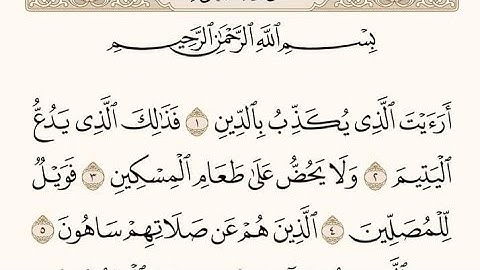 بِسْمِ ٱللَّهِ ٱلرَّحْمَٰنِ ٱلرَّحِيمِ
أَرَءَيْتَ ٱلَّذِى يُكَذِّبُ بِٱلدِّينِ ١ فَذَٰلِكَ ٱلَّذِى يَدُعُّ
ٱلْيَتِيمَ ٢ وَلَا يَحُضُّ عَلَىٰ طَعَامِ ٱلْمِسْكِينِ ٣ فَوَيْلٌ
لِّلْمُصَلِّينَ ٤ ٱلَّذِينَ هُمْ عَن صَلَاتِهِمْ سَاهُونَ ٥